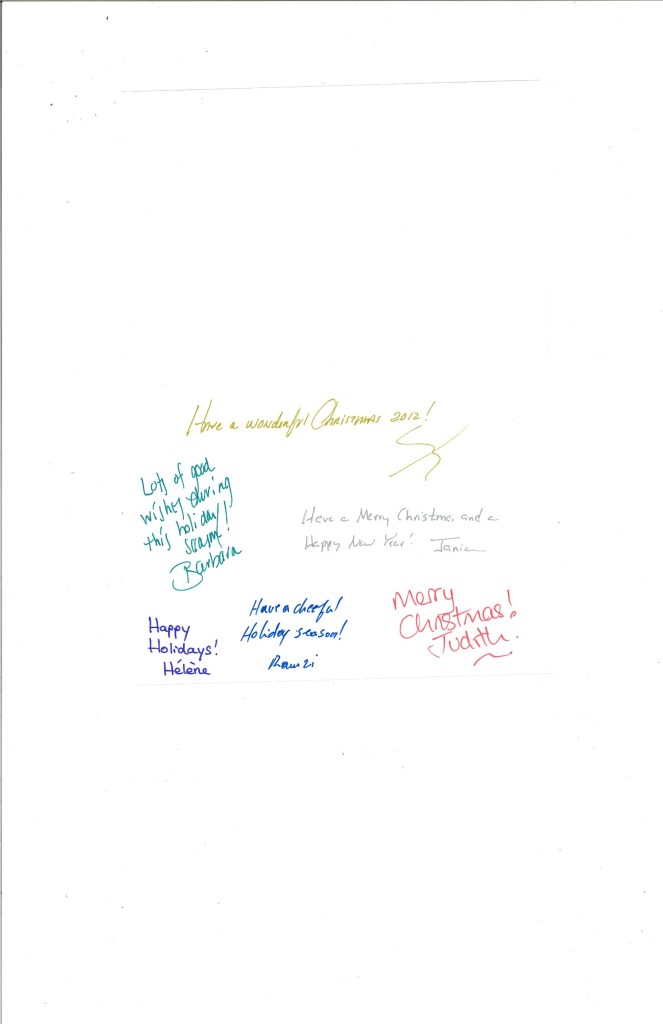 Have a wonderful Christmas 2012!
Lots of good
wishes during
this holiday
season!
Barbara
Have a Merry Christmas and a
Happy New Year! Janice
Happy
Holidays!
Hélène
Have a cheerful
Holiday season!
Ramzi
Merry
Christmas!
Judith